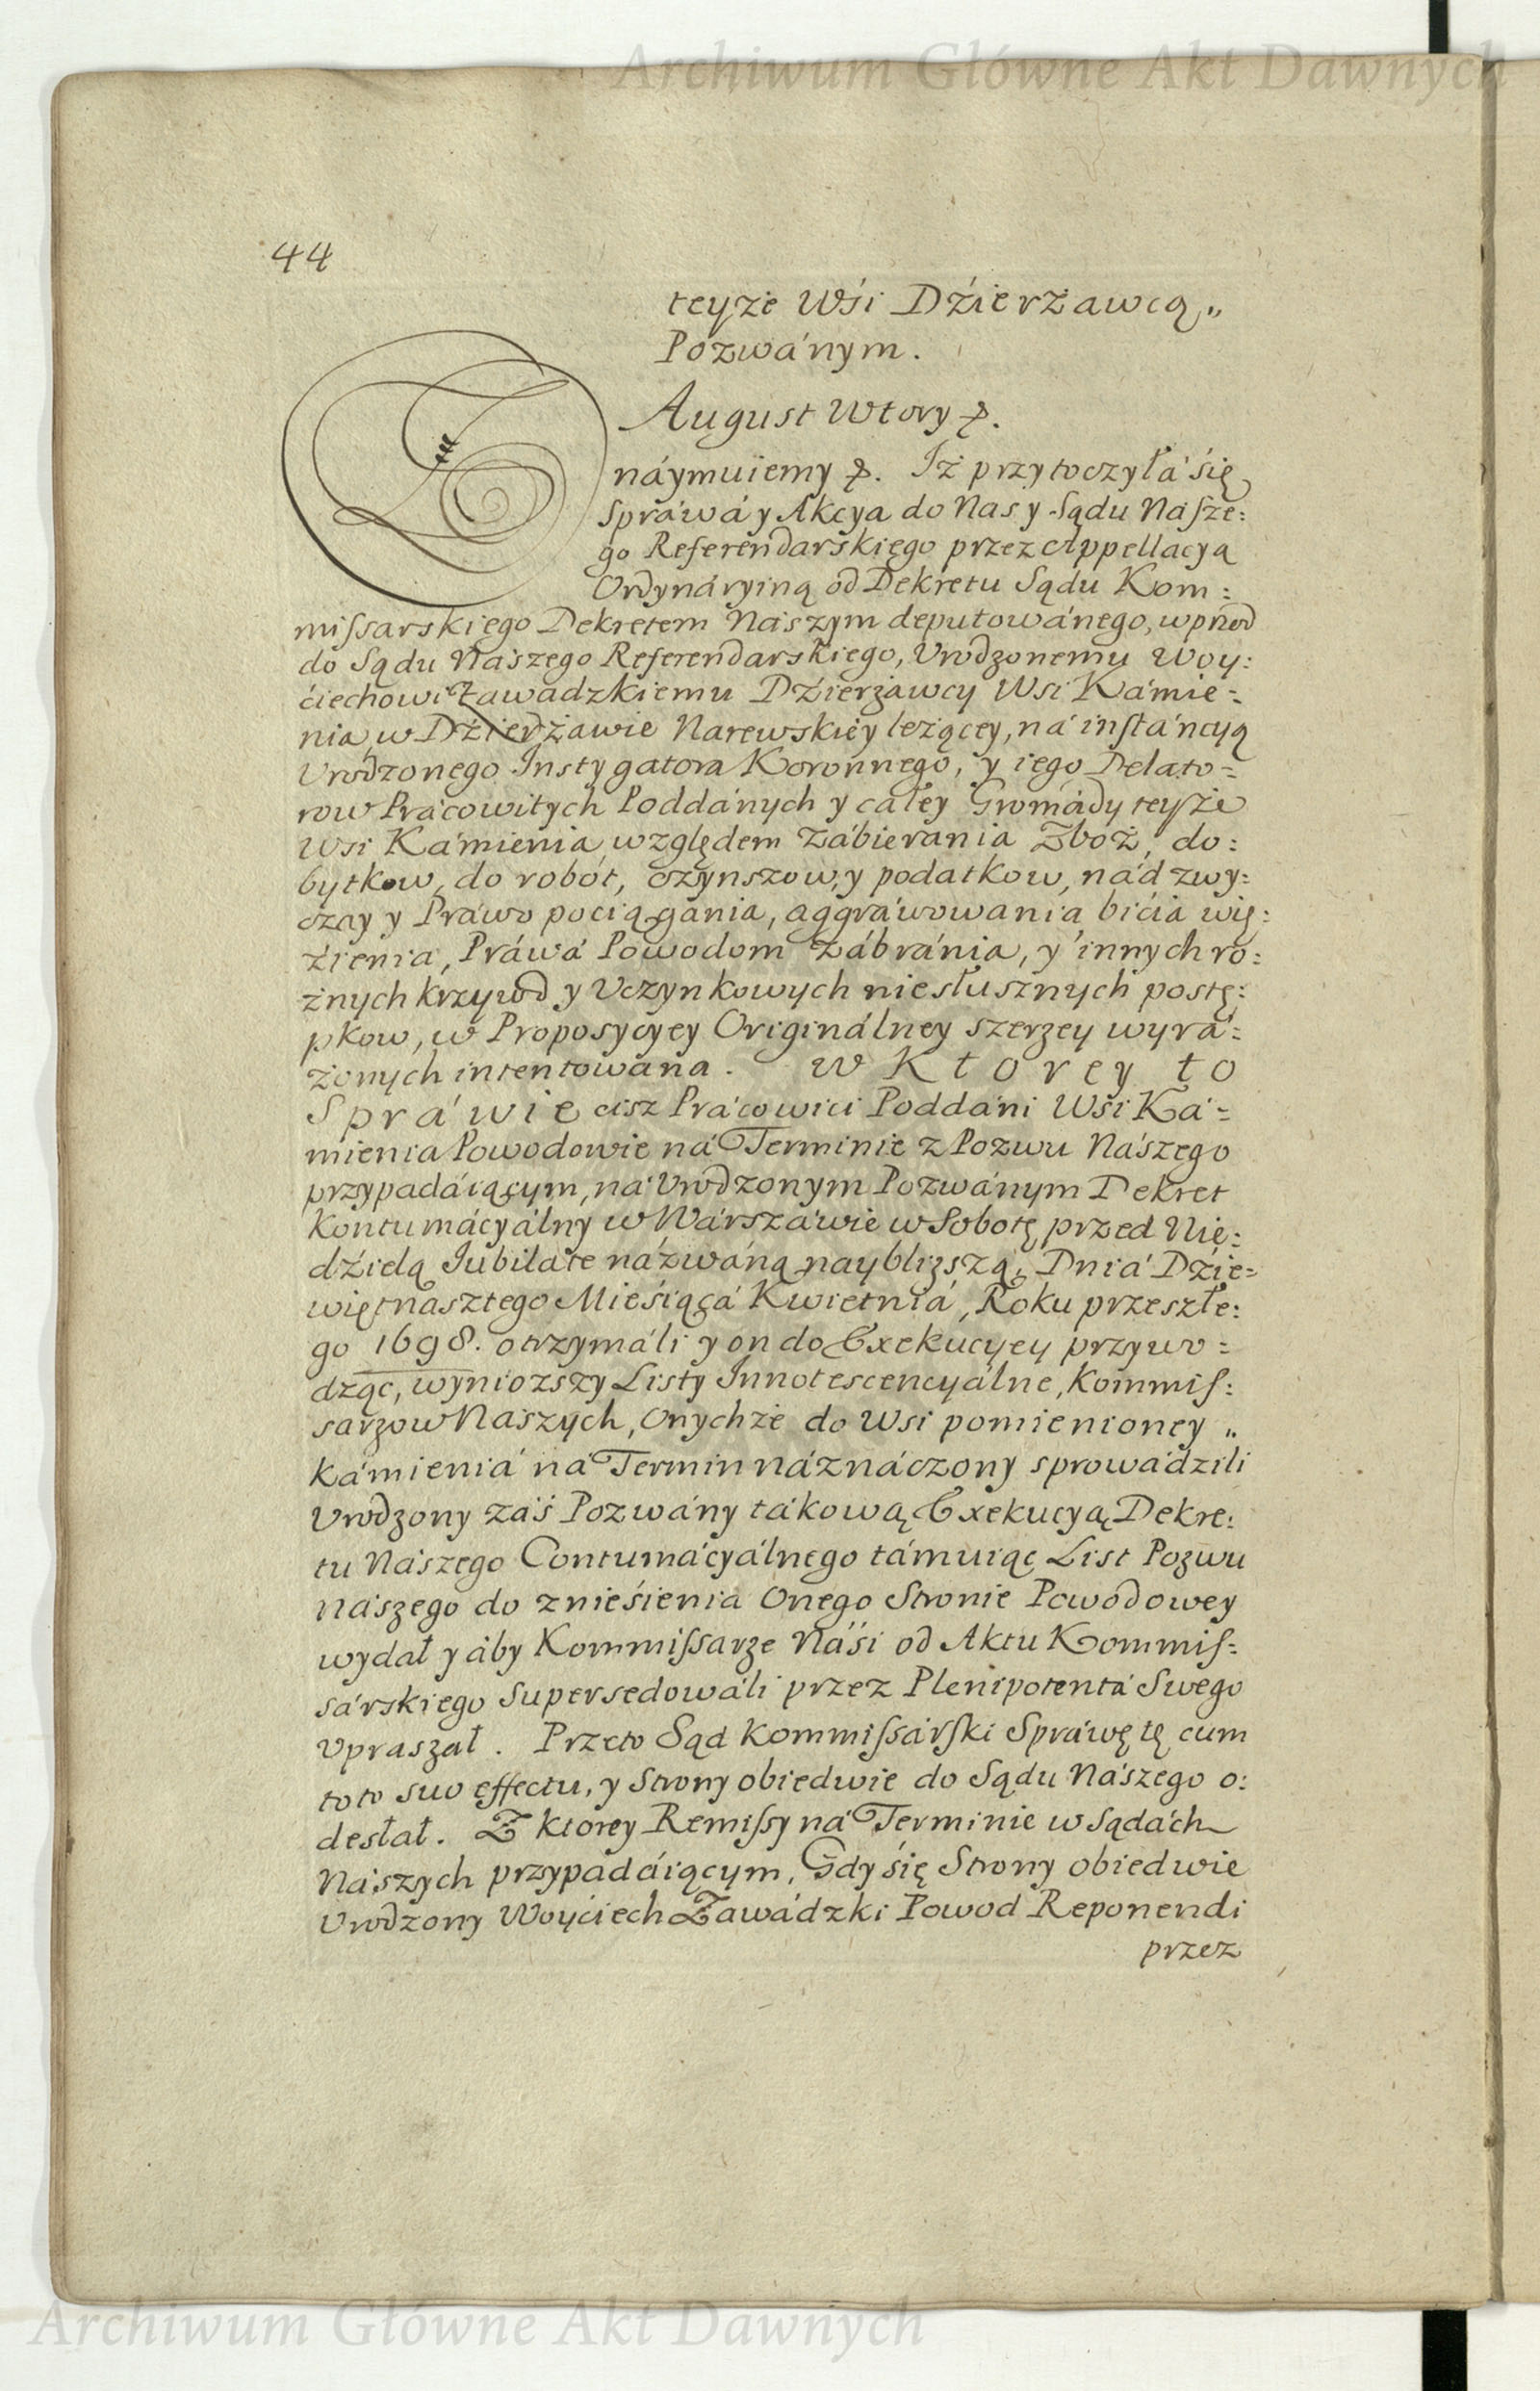 Archiwum Główne Akt Dawnych
44
teyże Wśi Dźierżawcą „
Pozwánym.
August Wtory &.
Znáymuiemy &. Iż przytoczyłá się
Spráwá y Akcya do Nas y Sądu Nasze:
go Referendarskiego przez Appellacyą
Ordynáryiną od Dekretu Sądu Kom:
missarskiego Dekretem Naszym deputowánego, wprzod
do Sądu Naszego Referendarskiego, Vrodzonemu Woy:
ćiechowi Zawadzkiemu Dźierżawcy Wsi Kámie=
nia, w Dźierżawie Narewskiey leżącey, ná instáncyą
Vrodzonego Instygatora Koronnego, y iego Delato=
row Prácowitych Poddánych y całey Gromády teyże
Wsi Kámienia, względem Zábierania Zboż, do:
bytkow, do robot, czynszow, y podatkow, nád zwy:
czay y Práwo pociągánia, aggráwowania bićia wię:
źienia, Práwá Powodom Zábránia, y innych ro:
żnych krzywd y Vczynkowych niesłusznych postę:
pkow, w Proposycyey Originálney szerzey wyrá=
żonych intentowána. w Ktorey to
Spráwie cisz Prácowici Poddáni Wśi Ká=
mienia Powodowie ná Terminie z Pozwu Nászego
przypadáiącym, ná Vrodzonym Pozwánym Dekret
Kontumácyálny w Wárszáwie w Sobotę przed Nie:
dźielą Iubilate názwáną naybliższą, Dniá Dźie=
więtnasztego Mieśiącá Kwietniá, Roku przeszłe:
go 1698. otrzymáli y on do Exekucyey przywo=
dząc, wyniozszy Listy Innotescencyálne, Kommis:
sarzow Naszych, Onychże do Wsi pomienioney „
Kámieniá ná Termin náznáczony sprowádzili
Vrodzony záś Pozwány tákową Exekucyą Dekre:
tu Nászego Contumácyálnego támuiąc List Pozwu
nászego do znieśienia Onego Stronie Powodowey
wydał y áby Kommissarze Náśi od Aktu Kommis:
sárskiego Supersedowáli przez Plenipotentá Swego
Vpraszał. Przeto Sąd Kommissárski Spráwę tę cum
toto suo effectu, y Strony obiedwie do Sądu Nászego o:
desłał. Z ktorey Remissy ná Terminie w Sądách
Nászych przypadáiącym, Gdy się Strony obiedwie
Vrodzony Woyćiech Zawádzki Powod Reponendi
przez
Archiwum Główne Akt Dawnych